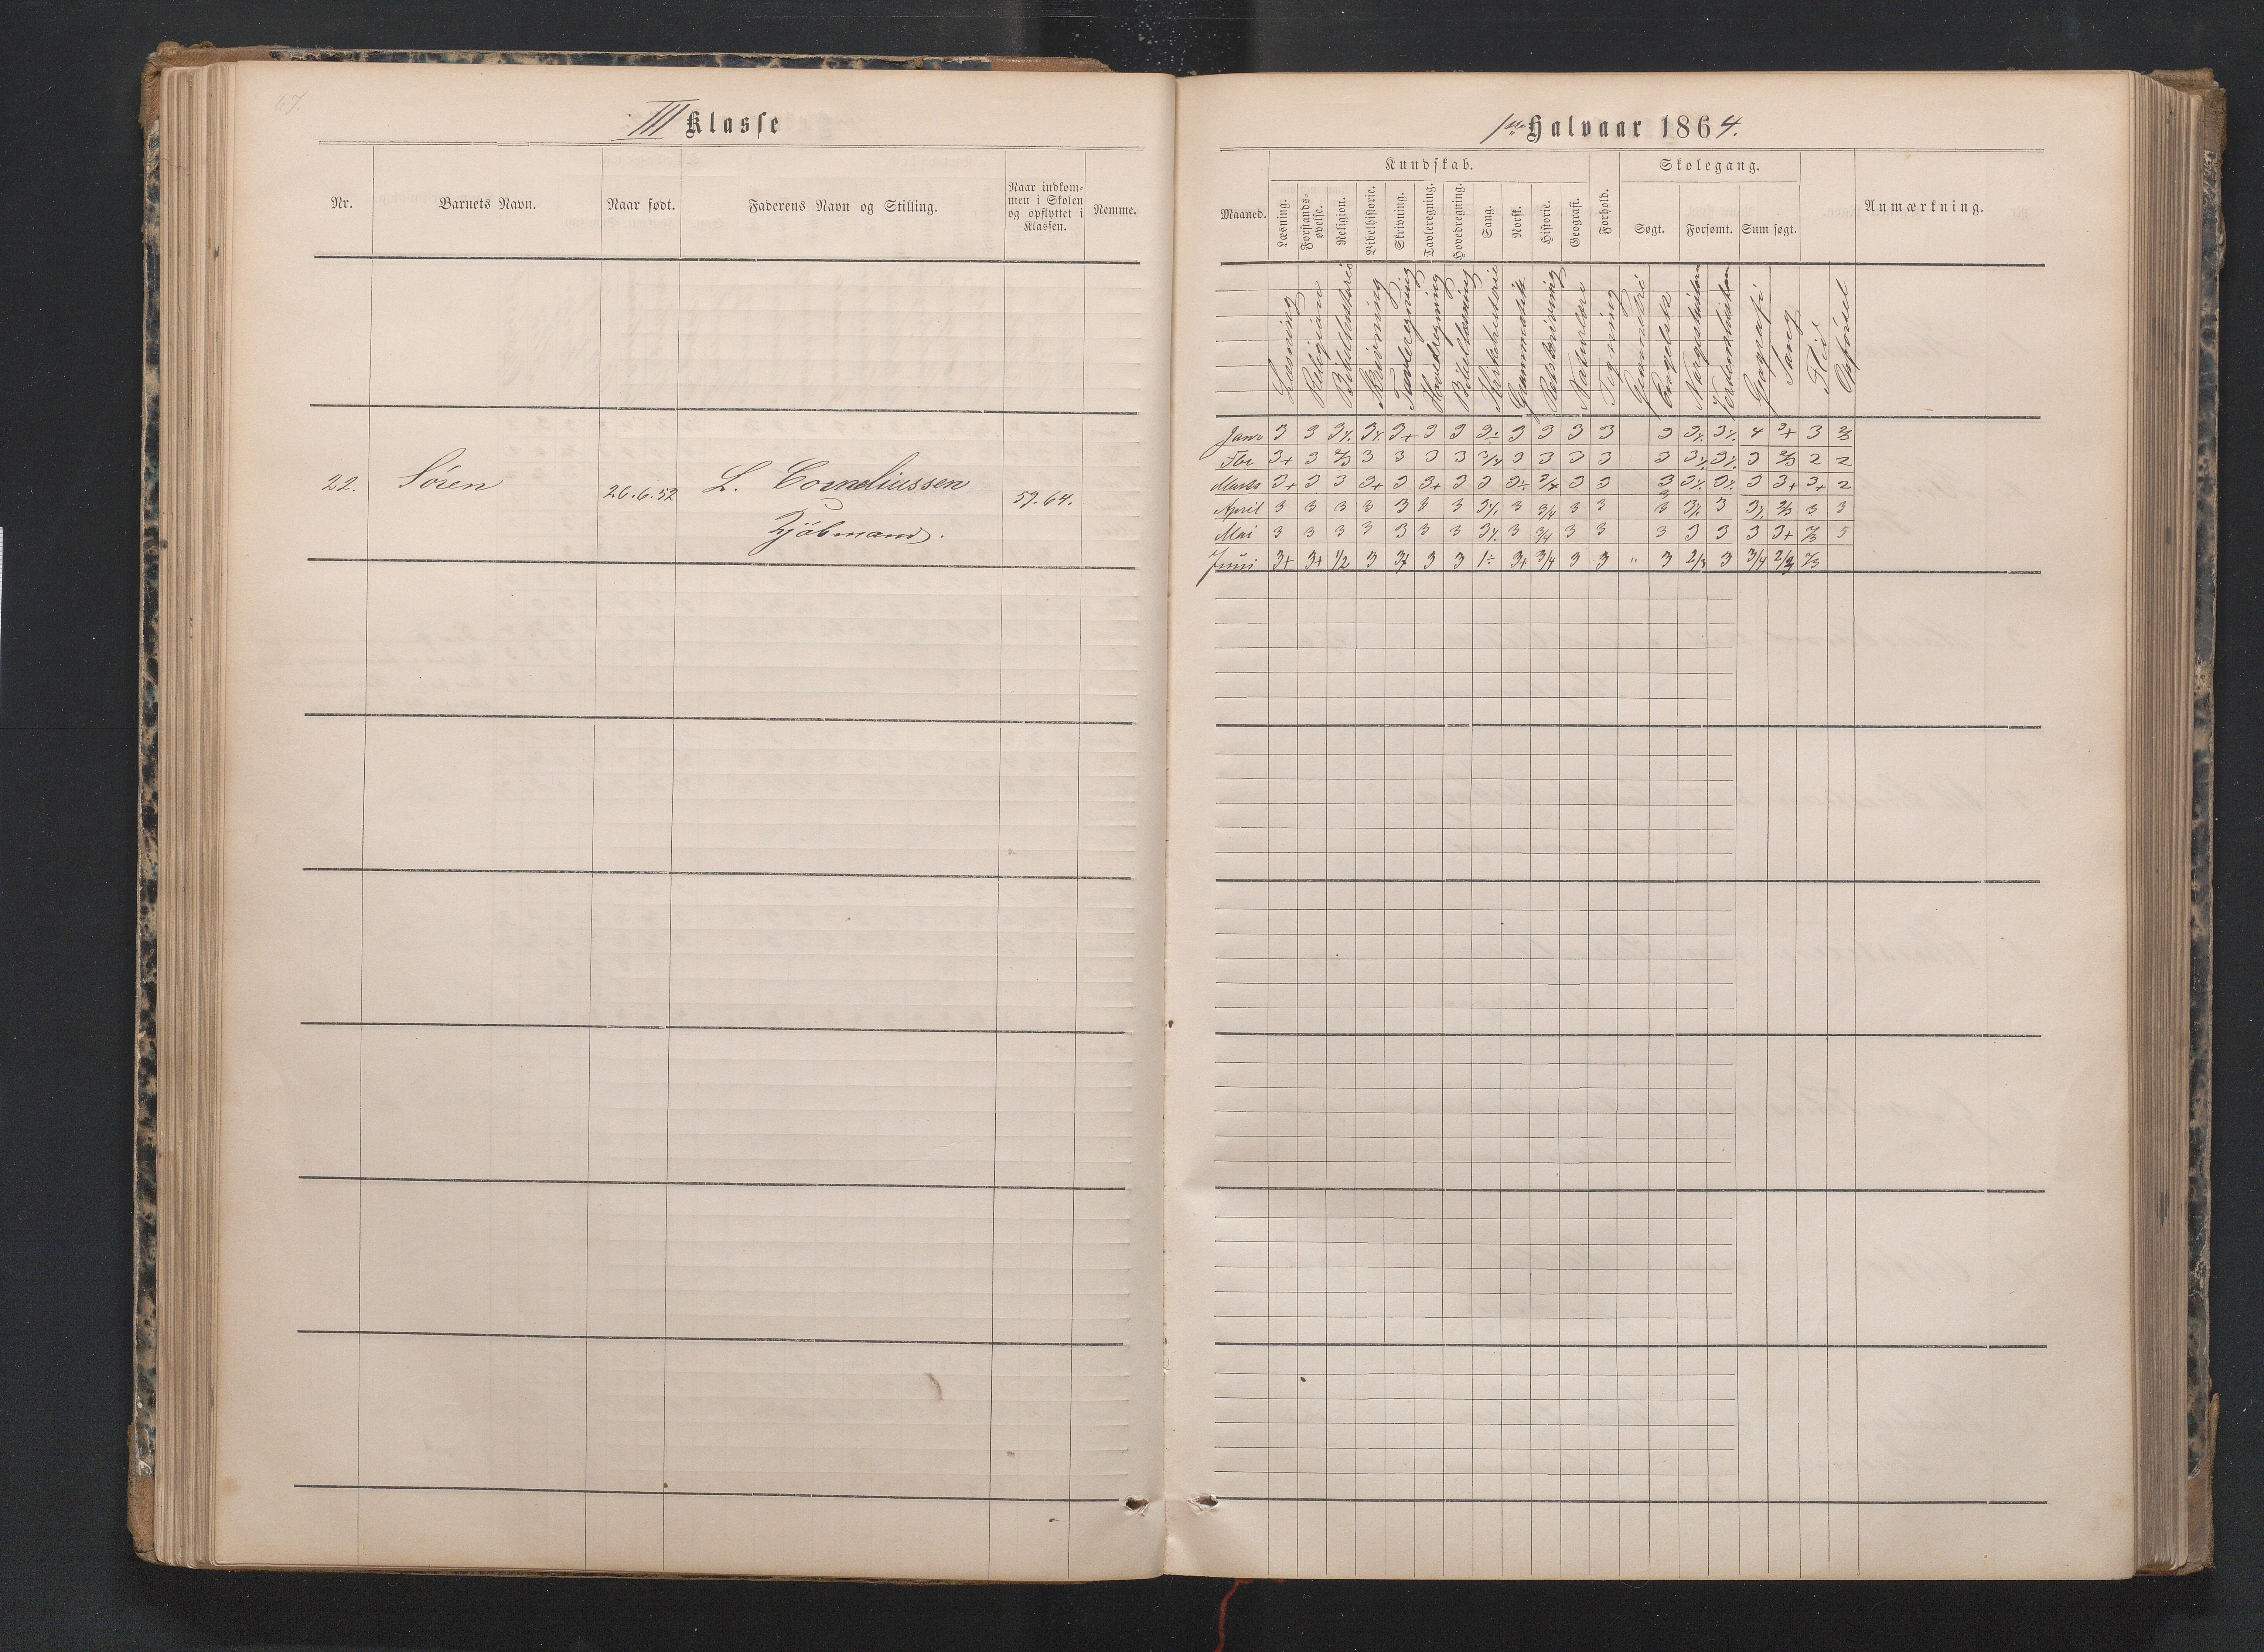 67.
III Klasse
Nr.
Barnets Navn.
Naar født.
Faderens Navn og Stilling.
Naar indkom-
men i Skolen
og opflyttet i
Klassen.
Nemme.
22.
Søren
26.6.52
L. Corneliussen
Kjøbmand.
59.64.
1ste Halvaar 1864.
Kundskab.
Skolegang.
Maaned.
Læsning.
Forstands-
øvelse.
Religion.
Bibelhistorie.
Skrivning.
Tavleregning.
Hovedregning.
Sang.
Norsk.
Historie.
Geografi.
Forhold.
Søgt.
Forsømt.
Sum søgt.
Anmærkning.
Læsning
Religion
Bibelhistorie
Skrivning
Tavleregning
Hovedregning
Bibellæsning
Kirkehistorie
Grammatik
Retskrivning
Naturlære
Tegning
Geometri
Engelsk
Norgeshistorie
Verdenshistorie
Geografi
Sang
Flid
Opførsel
Janr 3 3 3⁒ 3⁒ 3+ 3 3 3÷ 3 3 3 3 3 3⁒ 3⁒ 4 3+ 3 2/3
Fbr 3+ 3 2/3 3 3 3 3 3/4 3 3 3 3 3 3⁒ 3⁒ 3 2/3 2 2
Marts 3+ 3 3 3+ 3 3+ 3 3 3÷ 3/4 3 3 3 3⁒ 3⁒ 3 3+ 3+ 2
April 3 3 3 3 3 3 3 3⁒ 3 3/4 3 3 3 3⁒ 3 3⁒ 2/3 3 3
Mai 3 3 3 3 3 3 3 3⁒ 3 3/4 3 3 3 3 3 3 3+ 2/3 5
Juni 3+ 3+ 1/2 3 3+ 3 3 1÷ 3+ 3/4 3 3 " 3 2/3 3 3/4 2/3 2/3